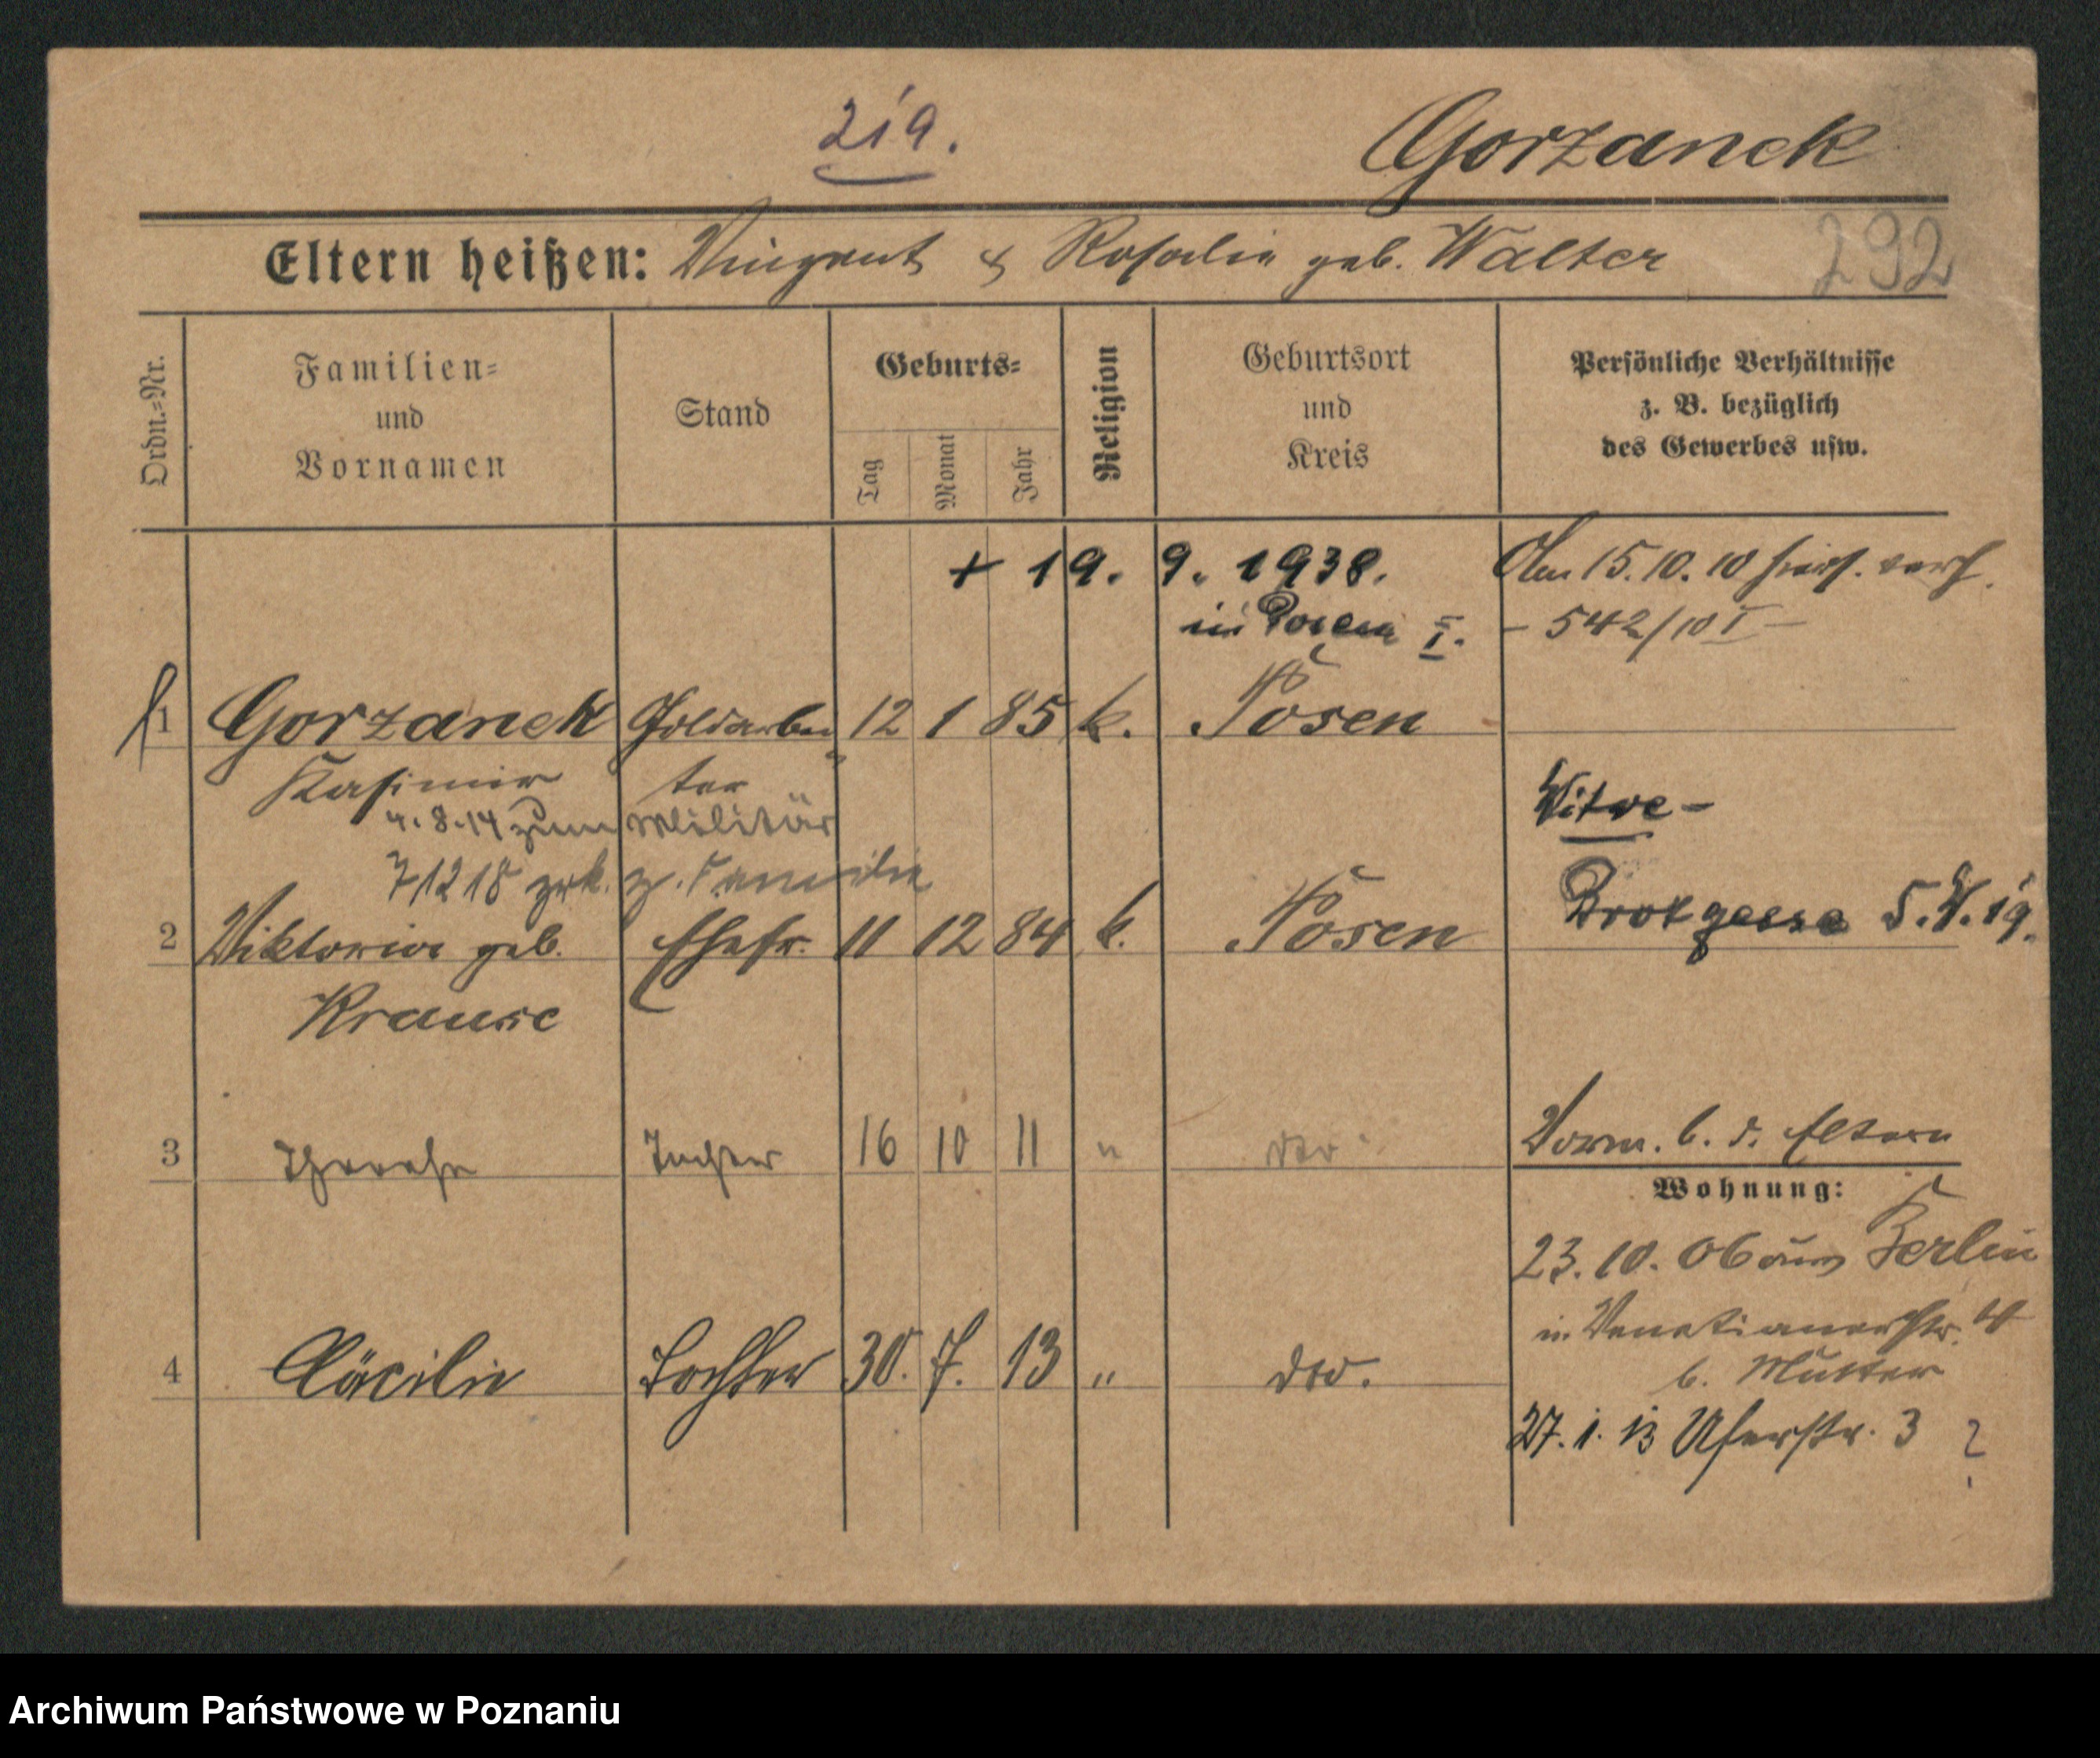 219.
Gorzanek
Eltern heißen: Vinzent & Rosalie geb. Walter
292
Ordn.=Nr.
Familien=
und
Vornamen
Stand
Geburts=
Tag
Monat
Jahr
Religion
Geburtsort
und
Kreis
Persönliche Verhältnisse
z. B. bezüglich
des Gewerbes usw.
+ 19. 9. 1938.
in Posen I.
15.10.10
- 542/10 I -
1 Gorzanek Goldarbei 12 1 85 k. Posen
Kasimir ter
4.8.14 zum Militär
71218 zrk. z. Familie
Witwe -
2 Viktoria geb. Ehefr. 11 12 84 k. Posen
Krause
19.
3 Therese Tochter 16 10 11 " dto
Vorm. b. d. Eltern
Wohnung:
23.10.06 aus Berlin
in Venetianerstr. 4
b. Mutter
4 Cäcilie Tochter 30. 7. 13 " dto.
27.1.13 Uferstr. 3 ?
Archiwum Państwowe w Poznaniu